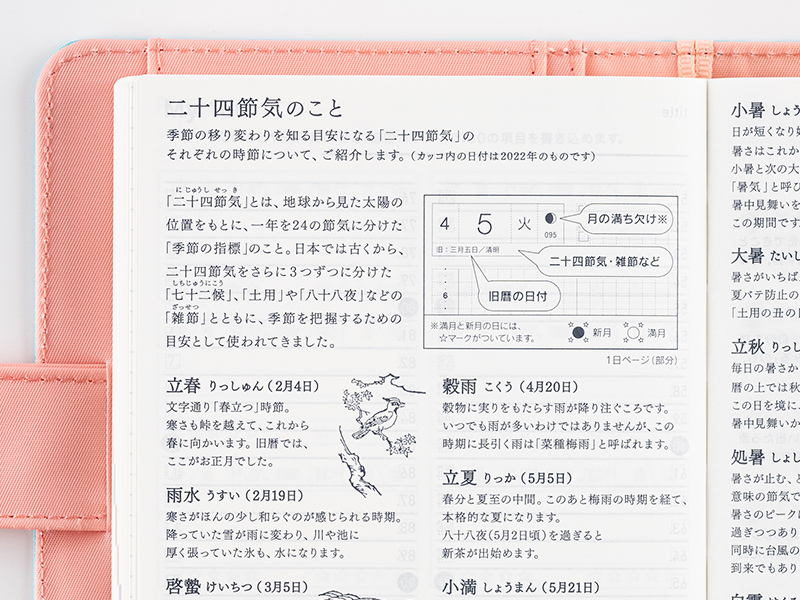 二十四節気のこと
季節の移り変わりを知る目安になる「二十四節気」の
それぞれの時節について、ご紹介します。（カッコ内の日付は2022年のものです）
にじゅうし せっき
「二十四節気」とは、地球から見た太陽の
位置をもとに、一年を24の節気に分けた
「季節の指標」のこと。日本では古くから、
二十四節気をさらに3つずつに分けた
しちじゅうにこう
「七十二候」、「土用」や「八十八夜」などの
ざっせつ
「雑節」とともに、季節を把握するための
目安として使われてきました。
4 5 火
095
月の満ち欠け※
旧：三月五日／清明
二十四節気・雑節など
6
旧暦の日付
※満月と新月の日には、
☆マークがついています。
新月
満月
1日ページ（部分）
立春 りっしゅん（2月4日）
文字通り「春立つ」時節。
寒さも峠を越えて、これから
春に向かいます。旧暦では、
ここがお正月でした。
雨水 うすい（2月19日）
寒さがほんの少し和らぐのが感じられる時期。
降っていた雪が雨に変わり、川や池に
厚く張っていた氷も、水になります。
啓蟄 けいちつ（3月5日）
穀雨 こくう（4月20日）
穀物に実りをもたらす雨が降り注ぐころです。
いつでも雨が多いわけではありませんが、この
時期に長引く雨は「菜種梅雨」と呼ばれます。
立夏 りっか（5月5日）
春分と夏至の中間。このあと梅雨の時期を経て、
本格的な夏になります。
八十八夜（5月2日頃）を過ぎると
新茶が出始めます。
小満 しょうまん（5月21日）
小暑 しょう
日が短くなり始
暑さはこれか
小暑と次の大
「暑気」と呼び
暑中見舞いを
この期間です
大暑 たいし
暑さがいちば
夏バテ防止の
「土用の丑の日
立秋 りっし
毎日の暑さか
暦の上では秋
この日を境に
暑中見舞いか
処暑 しょし
暑さが止む、と
意味の節気で
暑さのピークは
過ぎつつあり
同時に台風の
到来でもあり